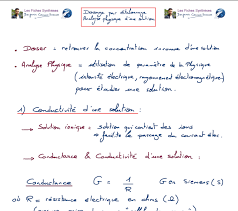 Les Fiches Synthèses Dosage par étalonnage Les Fiches Synthèses
Analyse physique d'une solution
• Doser = retrouver la concentration inconnue d'une solution
• Analyse Physique = utilisation de paramètre de la Physique
(intensité électrique, rayonnement électromagnétique)
pour étudier une solution.
1) Conductivité d'une solution :
→ Solution ionique = solution qui contient des ions
→ facilite le passage du courant élec.
→ Conductance & Conductivité d'une solution :
Conductance G = 1/R G en Siemens (S)
où R = résistance électrique en ohms (Ω)